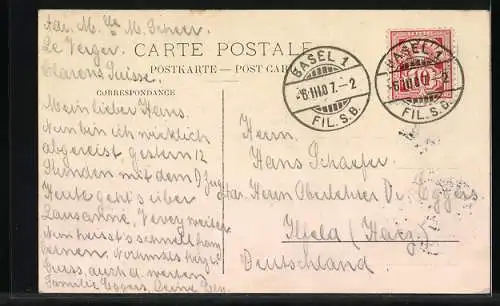 Le Verger
Clarens Suisse.
CARTE POSTALE
POSTKARTE — POST CAR
CORRESPONDANCE
Mein lieber Hans.
Nun bin ich wirklich
abgereist, gestern 12
Stunden mit dem D Zug
Heute geht's über
Lausanne, Vevey weiter
Nun heisst's schnell
Gruss, auch d. werten
Familie Eggers, Deine
BASEL 1
-6.III.07.-2
FIL. S.B.
BASEL 1
-6.III.07.-2
FIL. S.B.
10
Herrn
Hans Schaefer
Herrn Oberlehrer Dr. Eggers
Ilfeld (Harz)
Deutschland